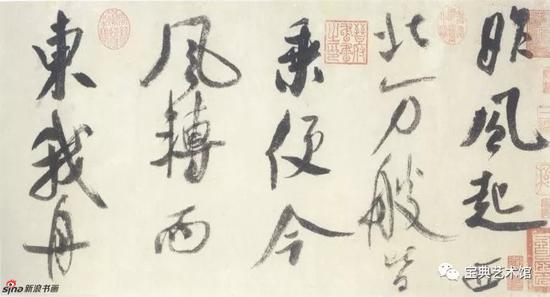 昨風起西
北万艘皆
乘便今
風轉而
東我舟
sina新浪书画
宝典艺术馆